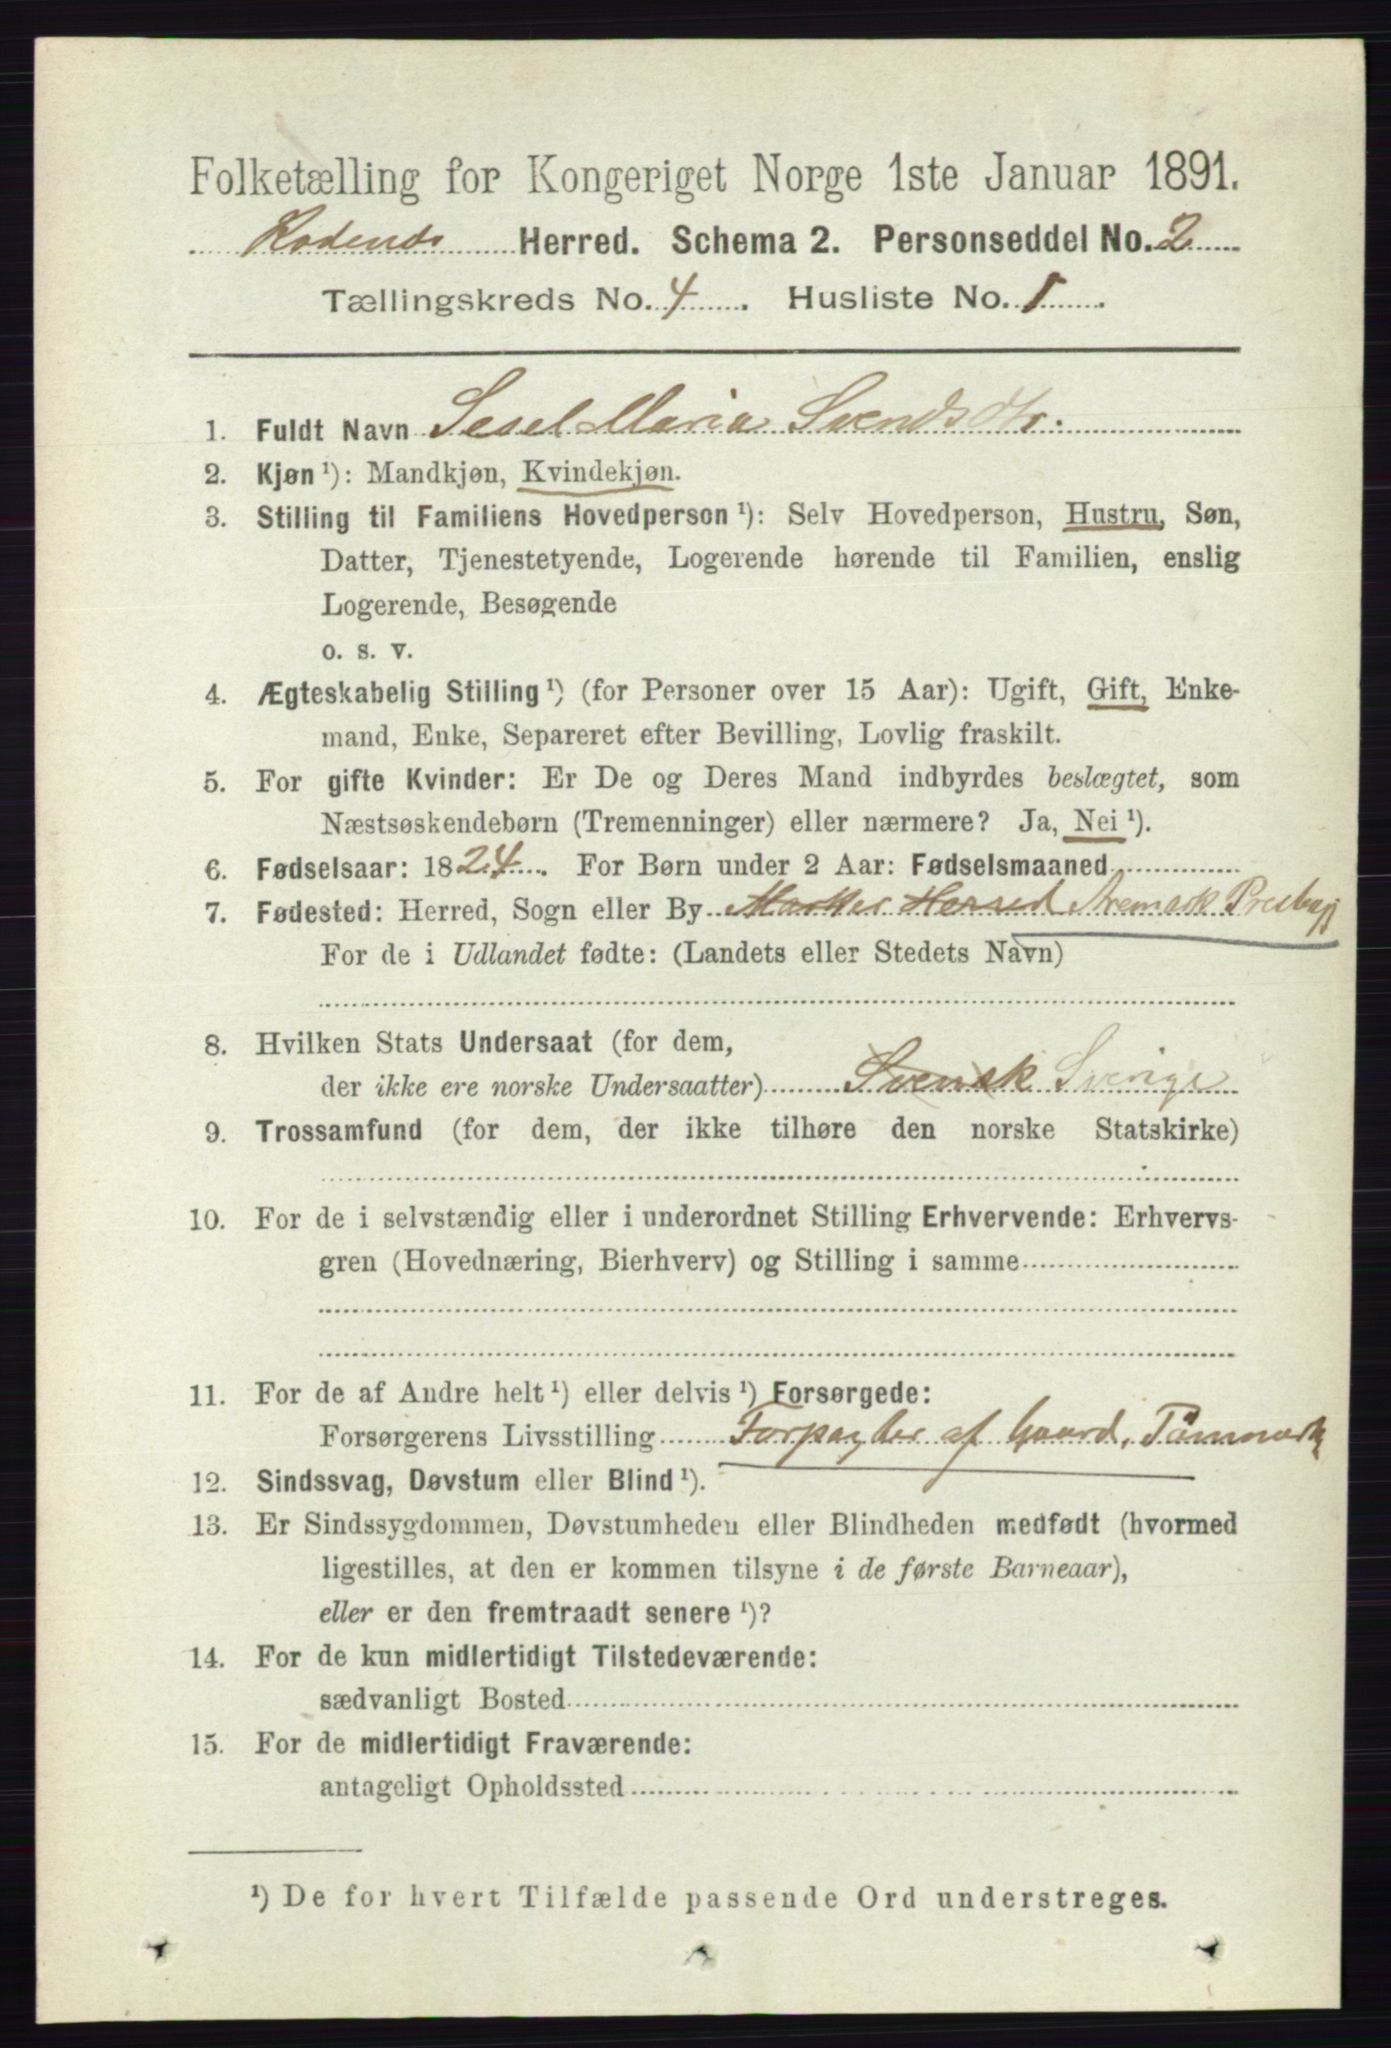 Folketælling for Kongeriget Norge 1ste Januar 1891.
Rødenæs Herred. Schema 2. Personseddel No. 2
Tællingskreds No. 4. Husliste No. 1.
1. Fuldt Navn Sesel Maria Svendsdtr.
2. Kjøn ¹): Mandkjøn, Kvindekjøn.
3. Stilling til Familiens Hovedperson ¹): Selv Hovedperson, Hustru, Søn,
Datter, Tjenestetyende, Logerende hørende til Familien, enslig
Logerende, Besøgende
o. s. v.
4. Ægteskabelig Stilling ¹) (for Personer over 15 Aar): Ugift, Gift, Enke-
mand, Enke, Separeret efter Bevilling, Lovlig fraskilt.
5. For gifte Kvinder: Er De og Deres Mand indbyrdes beslægtet, som
Næstsøskendebørn (Tremenninger) eller nærmere? Ja, Nei ¹).
6. Fødselsaar: 1824. For Børn under 2 Aar: Fødselsmaaned
7. Fødested: Herred, Sogn eller By Markes Herred Aremark Prestegj
For de i Udlandet fødte: (Landets eller Stedets Navn)
8. Hvilken Stats Undersaat (for dem,
der ikke ere norske Undersaatter) Svensk Sverige
9. Trossamfund (for dem, der ikke tilhøre den norske Statskirke)
10. For de i selvstændig eller i underordnet Stilling Erhvervende: Erhvervs-
gren (Hovednæring, Bierhverv) og Stilling i samme
11. For de af Andre helt ¹) eller delvis ¹) Forsørgede:
Forsørgerens Livsstilling Forpagter af Gaard,
12. Sindssvag, Døvstum eller Blind ¹).
13. Er Sindssygdommen, Døvstumheden eller Blindheden medfødt (hvormed
ligestilles, at den er kommen tilsyne i de første Barneaar),
eller er den fremtraadt senere ¹)?
14. For de kun midlertidigt Tilstedeværende:
sædvanligt Bosted
15. For de midlertidigt Fraværende:
antageligt Opholdssted
¹) De for hvert Tilfælde passende Ord understreges.